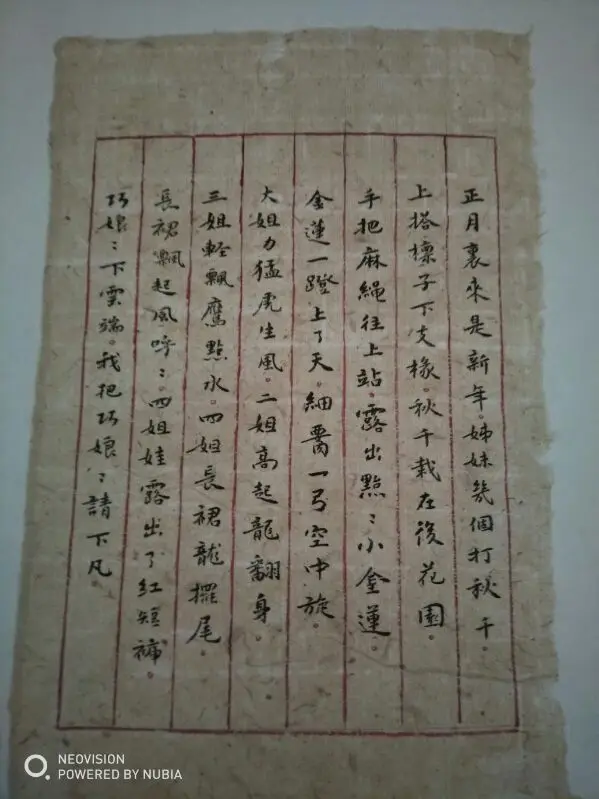 正月裏來是新年。姊妹幾個打秋千。
上搭檁子下支椽。秋千栽在後花園。
手把麻繩往上站。露出點〻小金蓮。
金蓮一蹬上了天。細腰一弓空中旋。
大姐力猛虎生風。二姐高起龍翻身。
三姐輕飄鷹點水。四姐長裙龍擺尾。
長裙飄起風呼〻。四姐娃露出了紅短褲。
巧娘〻下雲端。我把巧娘〻請下凡。
NEOVISION
POWERED BY NUBIA